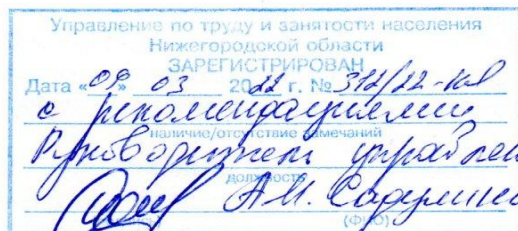 Управление по труду и занятости населения
Нижегородской области
ЗАРЕГИСТРИРОВАН
Дата «09» 03 2022 г. № 312/22-КД
с рекомендациями
наличие/отсутствие замечаний
Руководитель управлен
должность
А.И.
(ФИО)